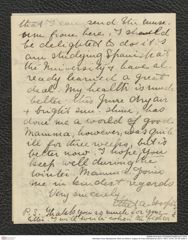 that I can send the muse-
um from here, I should
be delighted to do it. I
am studying Spanish at
the University & have al-
ready learned a great
deal. My health is much
better. This fine Arizona
bright sun shine, has
done me a world of good
Mamma, however, was quite
ill for three weeks, but is
better now. I hope you
keep well during the
winter. Mamma joins
me in kindest regards
Very sincerely,
P.S. Thank you so much for your